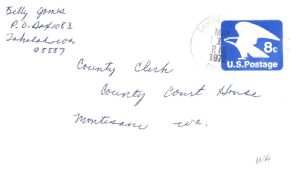 Billy Gomes
P.O. Box 1083
Taholah Wa
98587
MAY
PM
197
8c
U.S. Postage
County Clerk
County Court House
Montesano Wa.